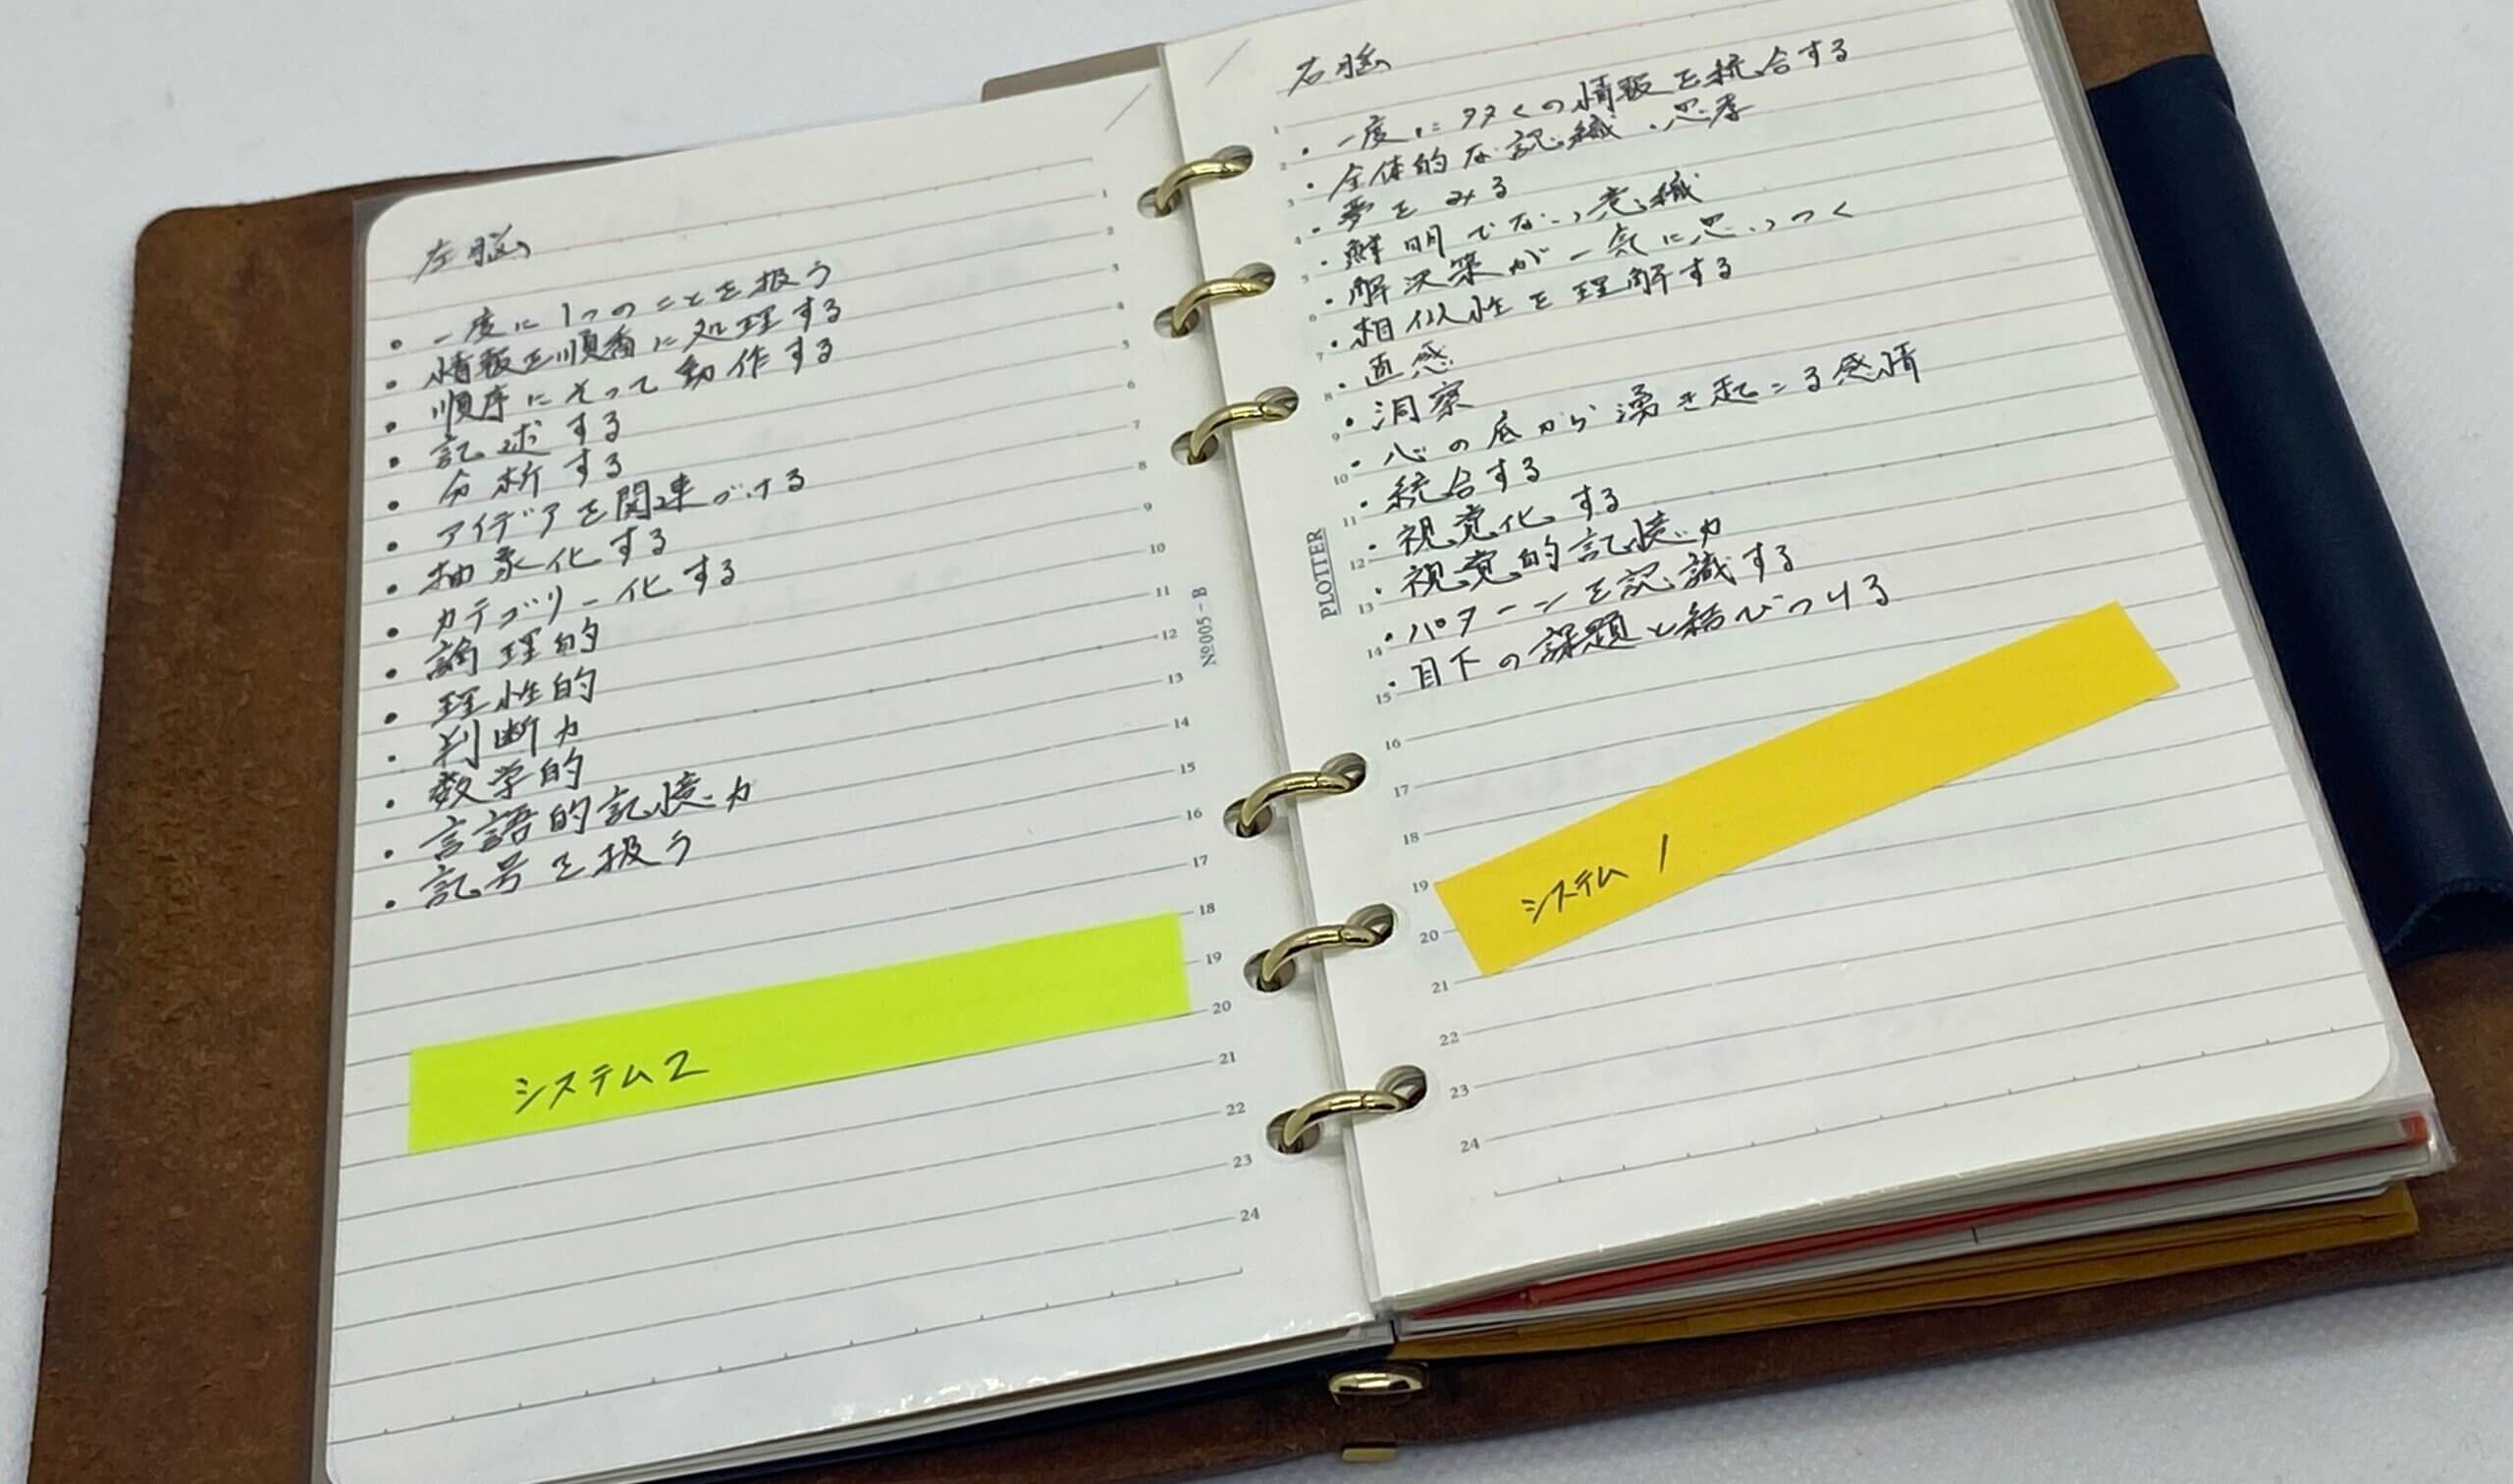 左脳
・一度に1つのことを扱う
・情報を順番に処理する
・順序にそって動作する
・記述する
・分析する
・アイデアを関連づける
・抽象化する
・カテゴリー化する
・論理的
・理性的
・判断力
・数学的
・言語的記憶力
・記号を扱う
システム2
1
2
3
4
5
6
7
8
9
10
11
12
13
14
15
16
17
18
19
20
21
22
23
24
No005-B
右脳
・一度に多くの情報を統合する
・全体的な認識・思考
・夢をみる
・鮮明でない意識
・解決策が一気に思いつく
・相似性を理解する
・直感
・洞察
・心の底から湧き起こる感情
・統合する
・視覚化する
・視覚的記憶力
・パターンを認識する
・目下の課題と結びつける
システム1
1
2
3
4
5
6
7
8
9
10
11
12
13
14
15
16
17
18
19
20
21
22
23
24
PLOTTER